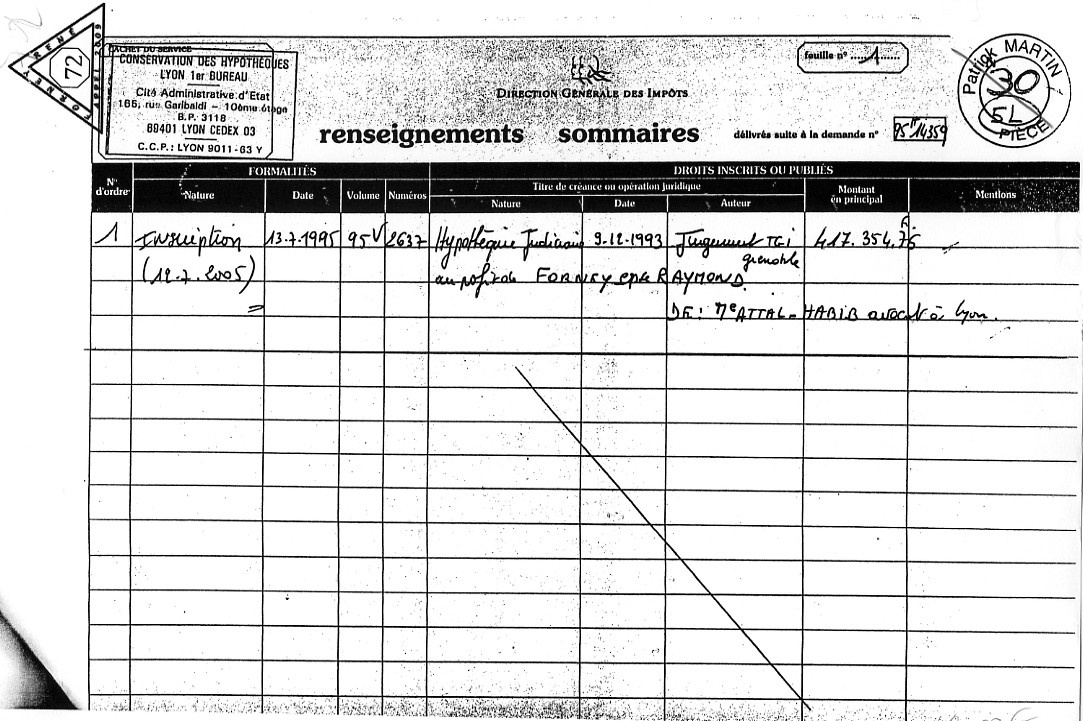 RENÉ
72
FORNEY
CACHET DU SERVICE
CONSERVATION DES HYPOTHÈQUES
LYON 1er BUREAU
Cité Administrative d'Etat
165, rue Garibaldi - 10ème étage
B.P. 3118
69401 LYON CEDEX 03
C.C.P. : LYON 9011-63 Y
DIRECTION GÉNÉRALE DES IMPÔTS
renseignements sommaires
feuille n° 1
délivrés suite à la demande n° 95H14359
Patrick MARTIN
30
5L
PIÈCE
N° d'ordre
FORMALITÉS
DROITS INSCRITS OU PUBLIÉS
Titre de créance ou opération juridique
Nature Date Volume Numéros Nature Date Auteur Montant en principal Mentions
1 Inscription 13.7.1995 95V 2637 Hypothèque Judiciaire 9.12.1993 Jugement TGI 417.354,76 F
grenoble
(12.7.2005) au profit de FORNEY epse RAYMOND.
DE: Me ATTAL-HABIB avocat à Lyon.